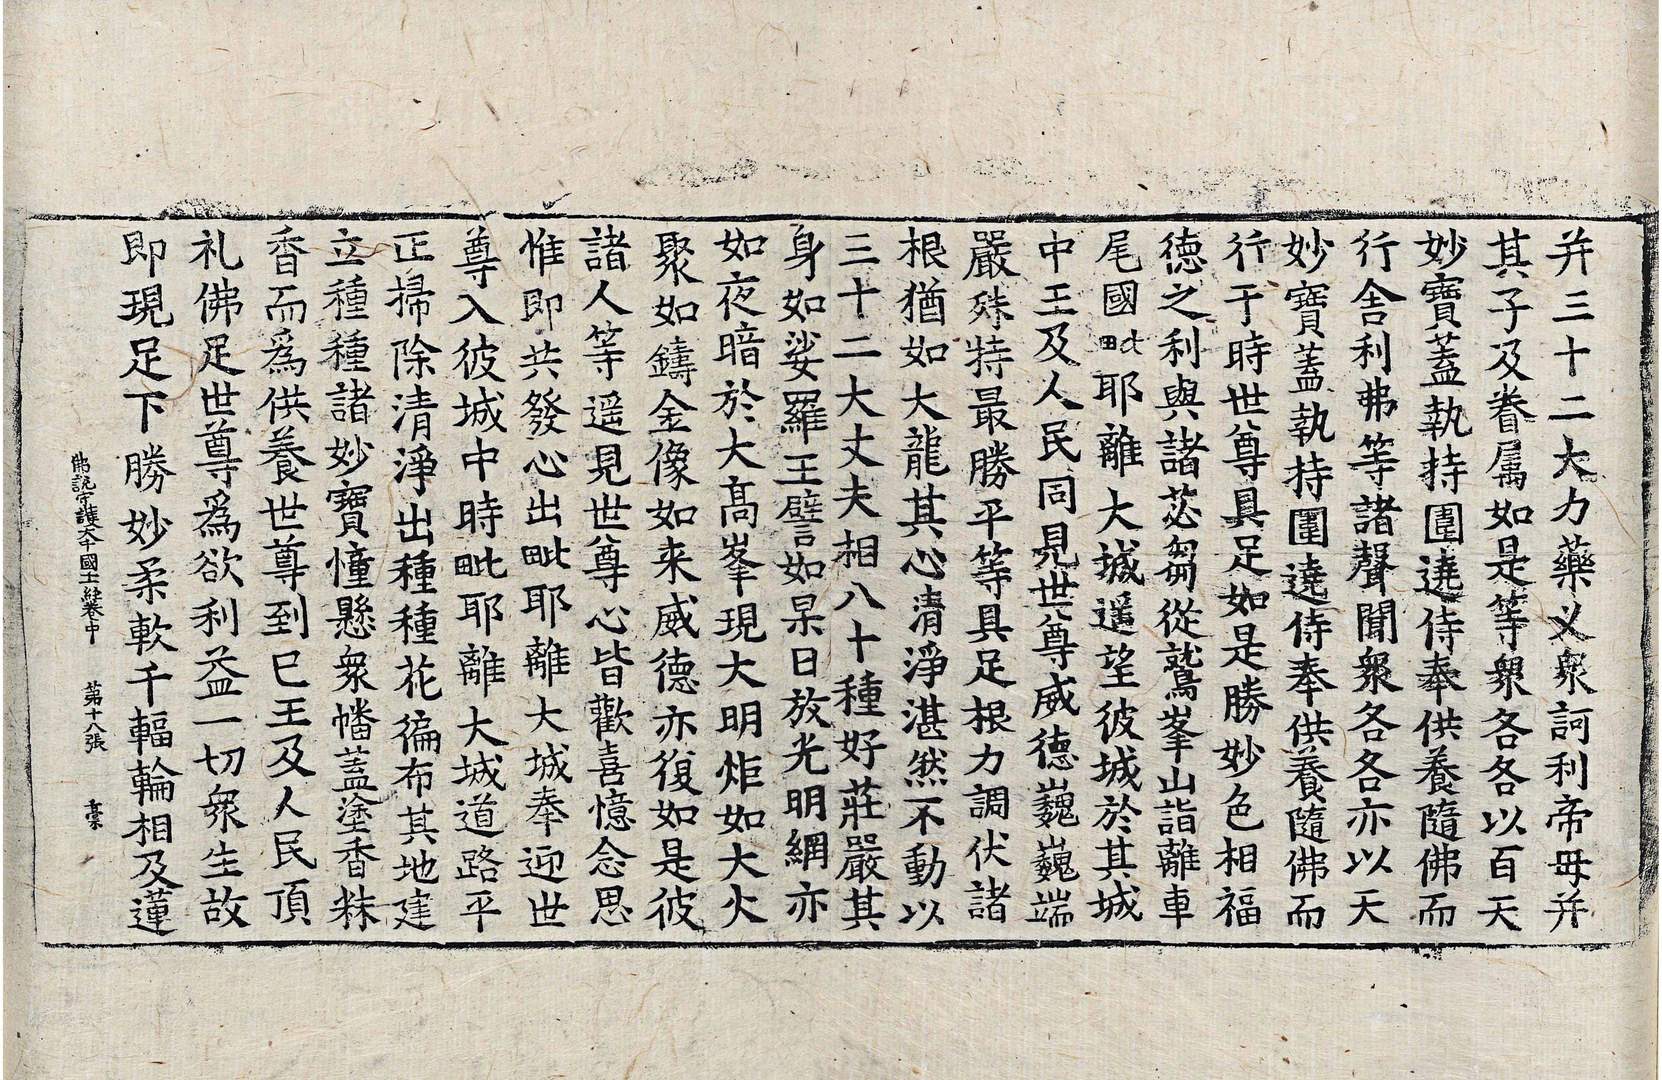 并三十二大力藥叉衆訶利帝母并
其子及眷属如是等衆各各以百天
妙寶蓋執持圍遶侍奉供養隨佛而
行舎利弗等諸聲聞衆各各亦以天
妙寶蓋執持圍遶侍奉供養隨佛而
行于時世尊具足如是勝妙色相福
德之利與諸苾芻從鷲峯山詣離車
尾國毗耶離大城遥望彼城於其城
中王及人民同見世尊威德巍巍端
嚴殊特最勝平等具足根力調伏諸
根猶如大龍其心清淨湛然不動以
三十二大丈夫相八十種好莊嚴其
身如娑羅王譬如杲日放光明網亦
如夜暗於大高峯現大明炬如大火
聚如鑄金像如来威德亦復如是彼
諸人等遥見世尊心皆歡喜憶念思
惟即共發心出毗耶離大城奉迎世
尊入彼城中時毗耶離大城道路平
正掃除清淨出種種花徧布其地建
立種種諸妙寶憧懸衆幡蓋塗香粖
香而爲供養世尊到已王及人民頂
礼佛足世尊爲欲利益一切衆生故
即現足下勝妙柔軟千輻輪相及蓮
佛說守護大千國土經卷中 第十八張 槀